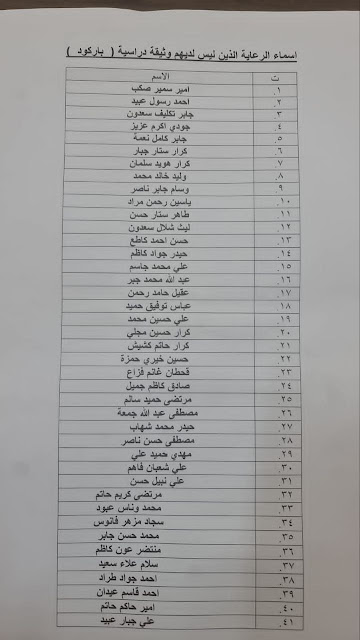 اسماء الرعاية الذين ليس لديهم وثيقة دراسية ( باركود )
ت الاسم
١. امير سمير صكب
٢. احمد رسول عبيد
٣. جابر تكليف سعدون
٤. جودي اكرم عزيز
٥. جابر كامل نعمة
٦. كرار ستار جبار
٧. كرار هويد سلمان
٨. وليد خالد محمد
٩. وسام جابر ناصر
١٠. ياسين رحمن مراد
١١. طاهر ستار حسن
١٢. ليث شلال سعدون
١٣. حسن احمد كاطع
١٤. حيدر جواد كاظم
١٥. علي محمد جاسم
١٦. عبد الله محمد جبر
١٧. عقيل حامد رحمن
١٨. عباس توفيق حميد
١٩. علي حسين محمد
٢٠. كرار حسين مجلي
٢١. كرار حاتم كشيش
٢٢. حسين خيري حمزة
٢٣. قحطان غانم فزاع
٢٤. صادق كاظم جميل
٢٥. مرتضى حميد سالم
٢٦. مصطفى عبد الله جمعة
٢٧. حيدر محمد شهاب
٢٨. مصطفى حسن ناصر
٢٩. مهدي حميد علي
٣٠. علي شعبان فاهم
٣١. علي نبيل حسن
٣٢. مرتضى كريم حاتم
٣٣. محمد وناس عبود
٣٤. سجاد مزهر فانوس
٣٥. محمد حسن جابر
٣٦. منتضر عون كاظم
٣٧. سلام علاء سعيد
٣٨. احمد جواد طراد
٣٩. احمد قاسم عيدان
٤٠. امير حاكم حاتم
٤١. علي جبار عبيد